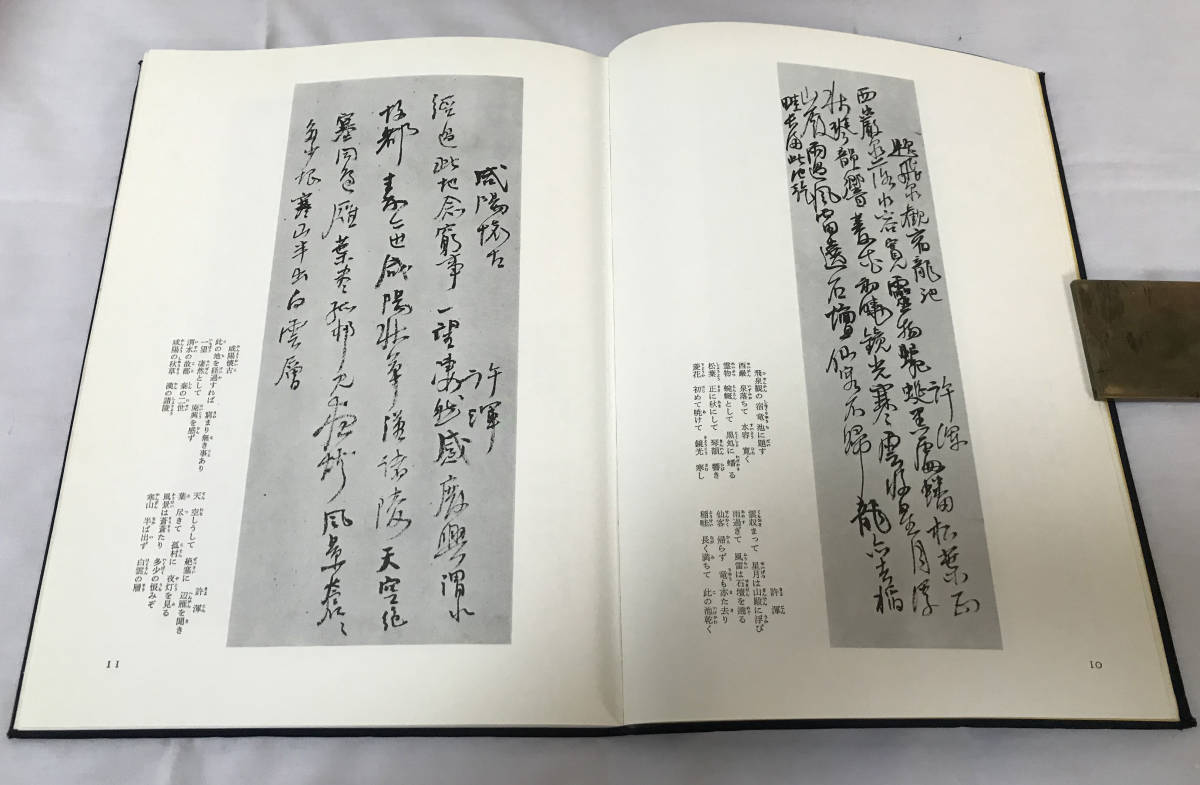 題飛泉觀宿龍池 許渾
西巖泉落水容寬靈物蜿蜒黑處蟠松葉正
秋琴韻響菱花初曉鏡光寒雲收星月浮
山殿雨過風雷遶石壇仙客不歸龍亦去稻
畦長滿此池乾
飛泉観の宿竜池に題す
西厳 泉落ちて 水容 寛く
霊物 蜿蜒として 黒処に 蟠る
松葉 正に秋にして 琴韻 響き
菱花 初めて暁けて 鏡光 寒し
許渾
雲収まって 星月は山殿に浮び
雨過ぎて 風雷は石壇を遶る
仙客 帰らず 竜も亦た去り
稲畦 長く満ちて 此の池乾く
10
咸陽懷古 許渾
經過此地無窮事一望淒然感廢興渭水
故都秦二世咸陽秋草漢諸陵天空絕
塞聞邊雁葉盡孤村見夜燈風景蒼々
多少恨寒山半出白雲層
咸陽懐古
此の地を経過すれば 窮まり無き事あり
一望 凄然として 廃興を感ず
渭水の故都 秦の二世
咸陽の秋草 漢の諸陵
許渾
天 空しうして 絶塞に 辺雁を聞き
葉 尽きて 孤村に 夜灯を見る
風景は蒼蒼たり 多少の恨みぞ
寒山 半ば出ず 白雲の層
11